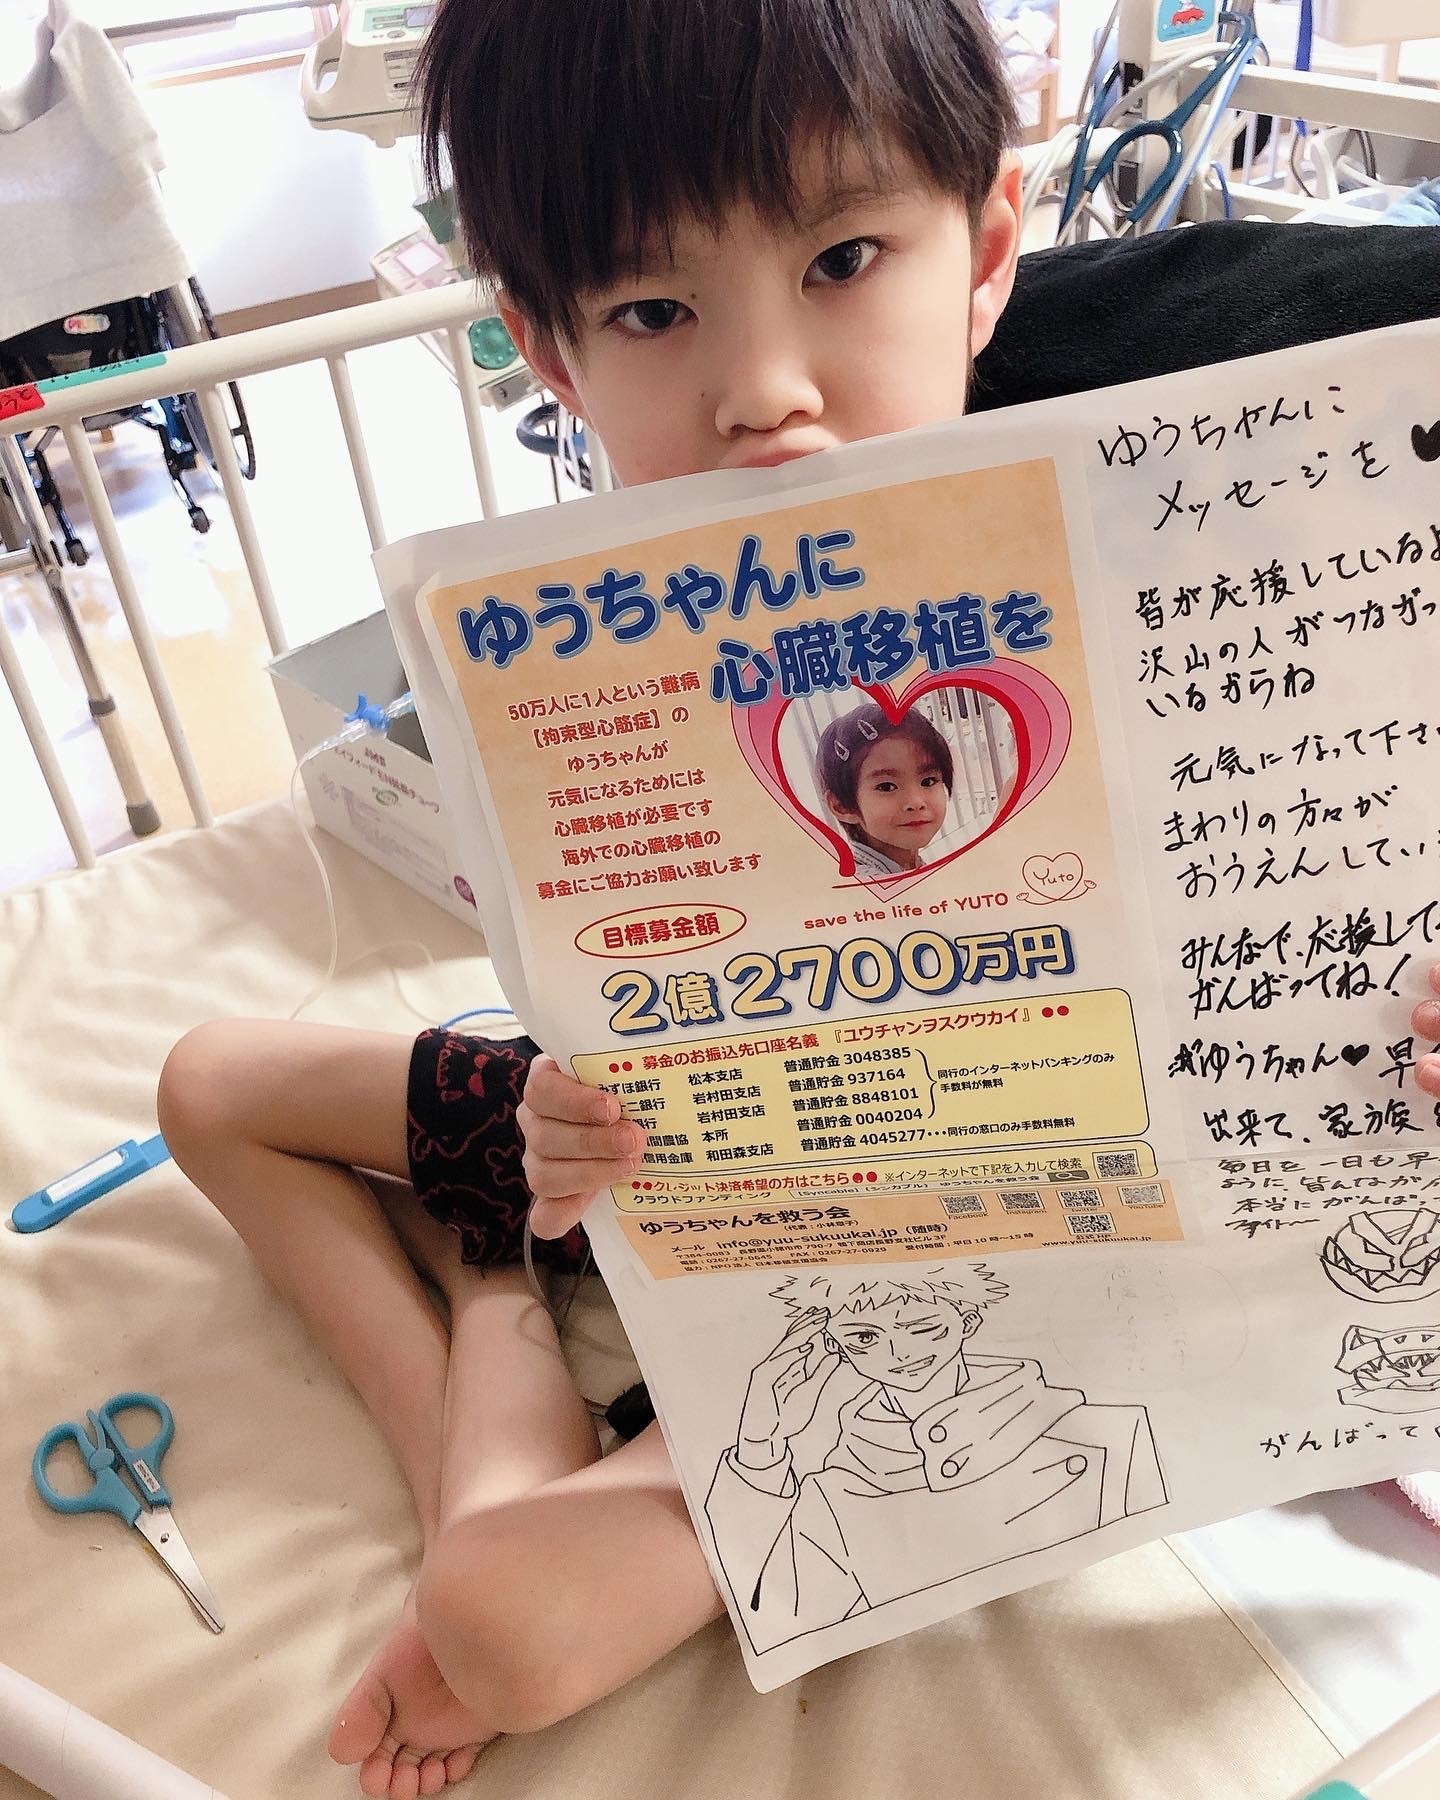 ゆうちゃんに
心臓移植を
50万人に1人という難病
【拘束型心筋症】の
ゆうちゃんが
元気になるためには
心臓移植が必要です
海外での心臓移植の
募金にご協力お願い致します
save the life of YUTO
Yuto
目標募金額
2億2700万円
募金のお振込先口座名義『ユウチャンヲスクウカイ』
みずほ銀行 松本支店 普通貯金 3048385
二銀行 岩村田支店 普通貯金 937164
銀行 岩村田支店 普通貯金 8848101
農協 本所 普通貯金 0040204
信用金庫 和田森支店 普通貯金 4045277･･･同行の窓口のみ手数料無料
同行のインターネットバンキングのみ
手数料が無料
クレジット決済希望の方はこちら ※インターネットで下記を入力して検索
クラウドファンディング 【Syncable】【シンカブル】 ゆうちゃんを救う会
ゆうちゃんを救う会
メール info@yuu-sukuukai.jp（随時）
〒384-0083 長野県小諸市市790-7 鴇下商店長野支社ビル3F
電話：0267-27-0645 FAX：0267-27-0929 受付時間：平日10時〜15時
協力：NPO法人 日本移植支援協会
Facebook
Instagram
Twitter
YouTube
公式HP
www.yuu-sukuukai.jp
ゆうちゃんに
メッセージを♥
皆が応援しているよ
沢山の人がつながって
いるからね
元気になって下さ
まわりの方々が
おうえんしてい
みんなで、応援して
がんばってね!
ゆうちゃん♥早
出来て、家族
毎日を一日も早
ように、皆んなが
本当にがんばっ
ファイト〜
がんばって